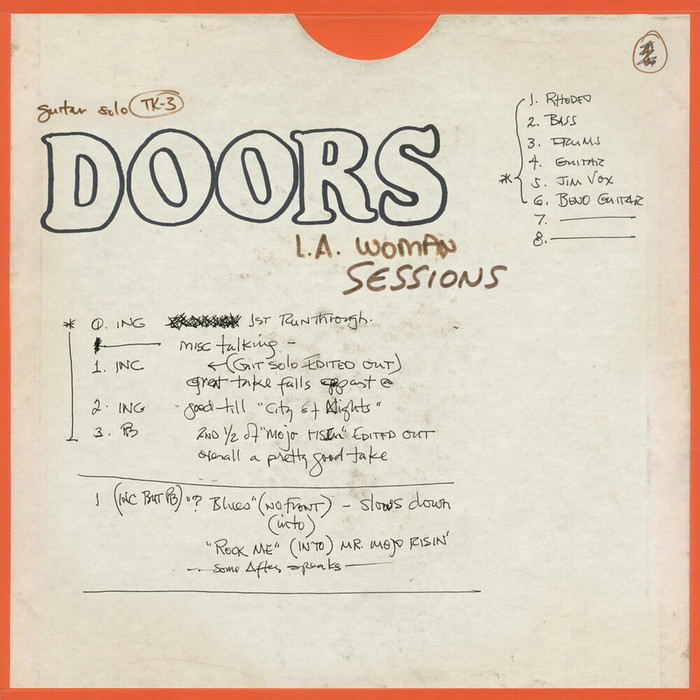 guitar solo TK-3
DOORS
L.A. WOMAN
SESSIONS
1. RHODES
2. BASS
3. DRUMS
4. GUITAR
* 5. JIM VOX
6. BENO GUITAR
7.
8.
* 0. INC 1ST RUNTHROUGH.
misc talking -
1. INC ← (GIT SOLO EDITED OUT)
great take falls appart @
2. INC good till "City of Nights"
3. PB 2ND 1/2 of "MOJO RISIN" EDITED OUT
overall a pretty good take
1 (INC BUT PB) "? Blues" (NO FRONT) - slows down
(into)
"ROCK ME" (INTO) MR. MOJO RISIN'
- some After speaks -